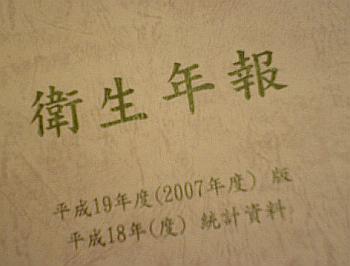 衛生年報
平成19年度(2007年度) 版
平成18年(度) 統計資料